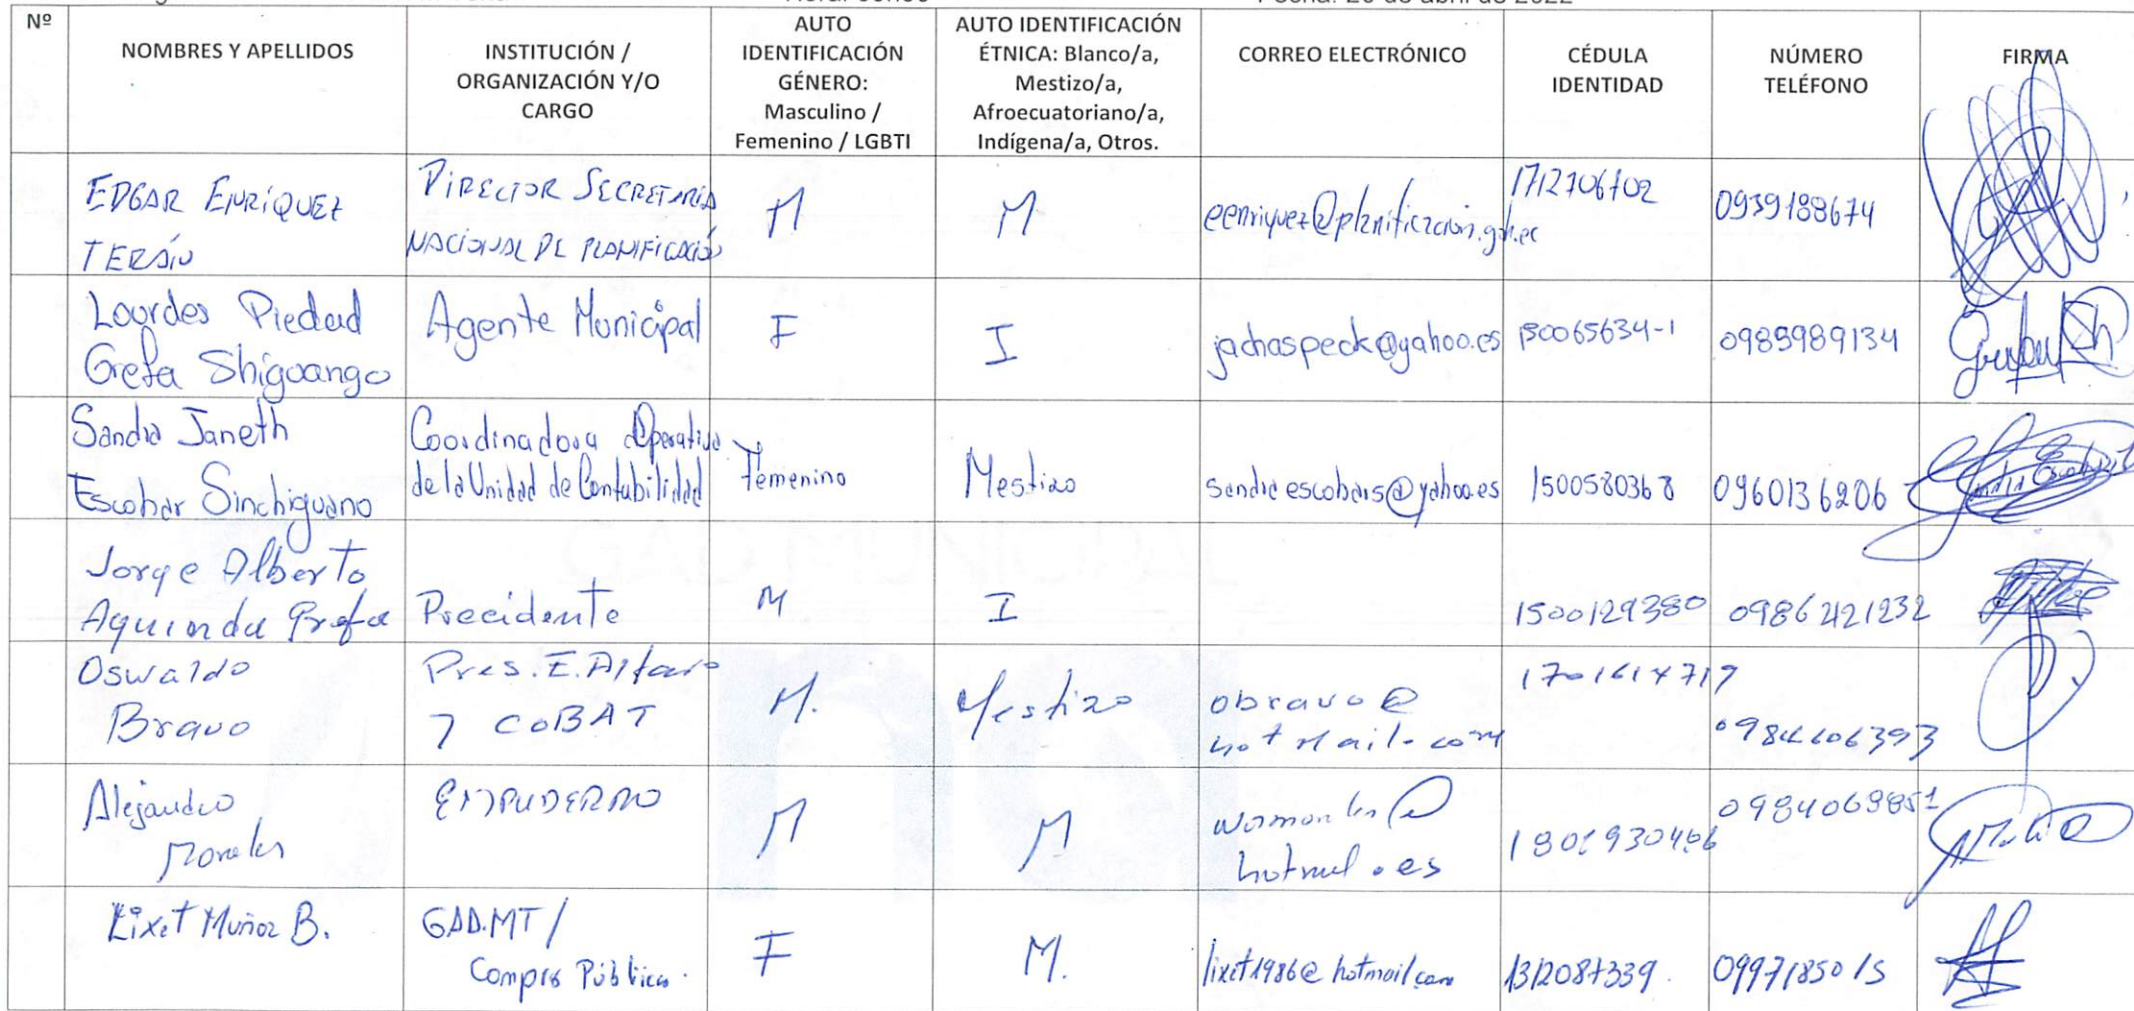 Fecha: 20 de abril de 2022
Nº
NOMBRES Y APELLIDOS
INSTITUCIÓN /
ORGANIZACIÓN Y/O
CARGO
AUTO
IDENTIFICACIÓN
GÉNERO:
Masculino /
Femenino / LGBTI
AUTO IDENTIFICACIÓN
ÉTNICA: Blanco/a,
Mestizo/a,
Afroecuatoriano/a,
Indígena/a, Otros.
CORREO ELECTRÓNICO
CÉDULA
IDENTIDAD
NÚMERO
TELÉFONO
FIRMA
EDGAR ENRÍQUEZ
TERÁN
DIRECTOR SECRETARIA
NACIONAL DE PLANIFICACIÓN
M
M
eenriquez@planificacion.gob.ec
1712706702
0939188674
Lourdes Piedad
Grefa Shiguango
Agente Municipal
F
I
jachaspeck@yahoo.es
150065634-1
0985989134
Sandra Janeth
Escobar Sinchiguano
Coordinadora Operativa
de la Unidad de Contabilidad
Femenino
Mestizo
sandraescobars@yahoo.es
1500580368
0960136206
Jorge Alberto
Aguinda Grefa
Precidente
M
I
1500129380
0986421232
GAD MUNICIPAL
Oswaldo
Bravo
Pres. E. Alfaro
y COBAT
M.
Mestizo
obravo@
hotmail.com
1701614719
Alejandro
Morales
EMPUDEPRO
M
M
hotmail.es
0984069851
Lixet Muñoz B.
GAD.MT /
Compras Públicas.
F
M.
lixet1986@hotmail.com
1312087339.
0997185015